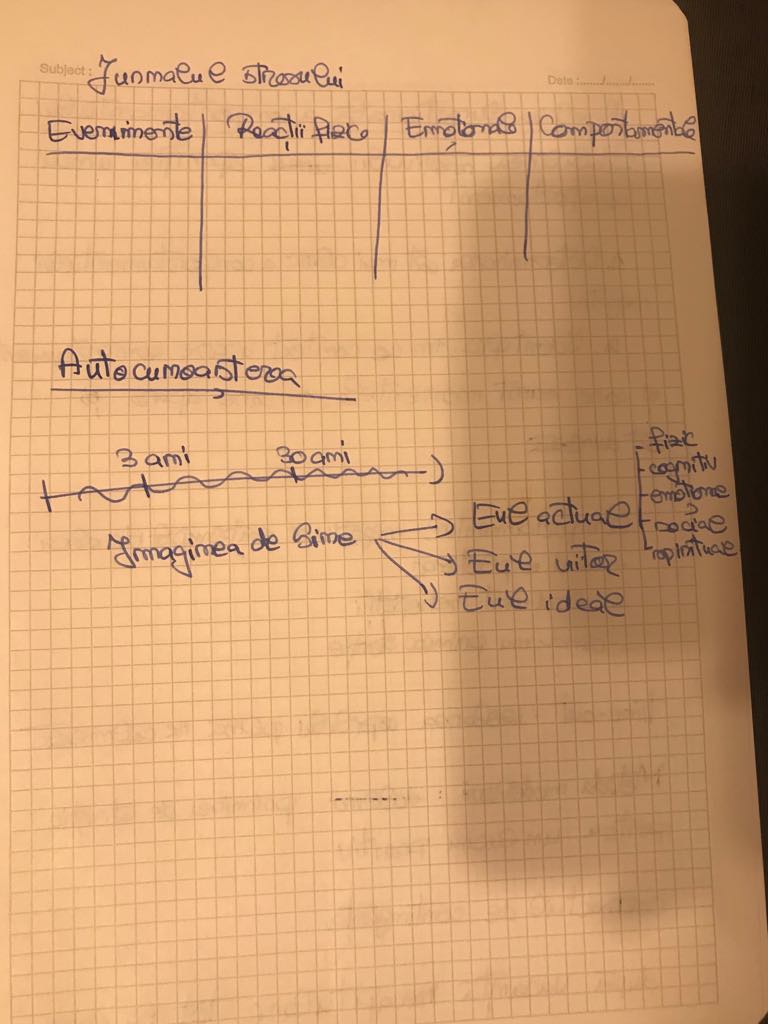 Subject: Jurnalul stresului
Date :....../....../......
Evenimente | Reacții fizice | Emoționale | Comportamentale
Autocunoașterea
3 ani 30 ani
Imaginea de Sine
Eul actual
Eul viitor
Eul ideal
- fizic
- cognitiv
- emoțional
- social
- spiritual